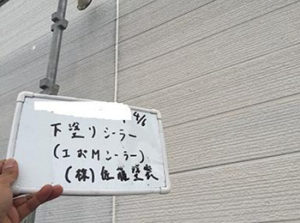 4/6
下塗りシーラー
(エポMシーラー)
(株)佐藤塗装